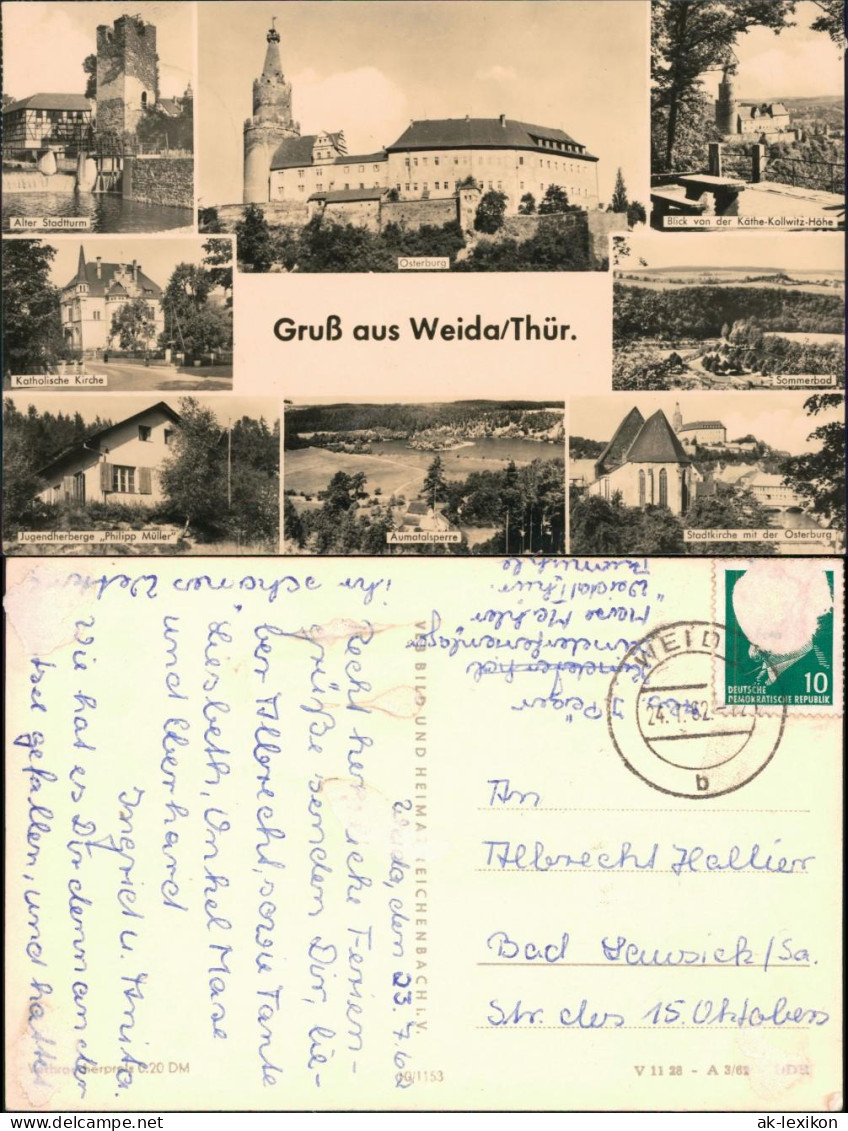 Alter Stadtturm
Osterburg
Blick von der Käthe-Kollwitz-Höhe
Gruß aus Weida/Thür.
Katholische Kirche
Sommerbad
Jugendherberge „Philipp Müller"
Aumatalsperre
Stadtkirche mit der Osterburg
Weida, den 23.7.62
Recht herzliche Ferien-
grüße senden Dir, lie-
ber Albrecht, sowie Tante
Liesbeth, Onkel Maxe
und Eberhard
Ingrid u. Anita.
Wie hat es Dir denn an der
gefallen, und hattet
ihr schönes
Kinderferienlager
Weida/Thür.
VEB BILD UND HEIMAT REICHENBACH i. V.
WEID
24.7.62
b
10
DEUTSCHE
DEMOKRATISCHE REPUBLIK
An
Albrecht Hallier
Bad Lausick/Sa.
Str. des 15. Oktobers
Verbraucherpreis 0.20 DM
60/1153
V 11 28 - A 3/62 DDR
ak-lexikon